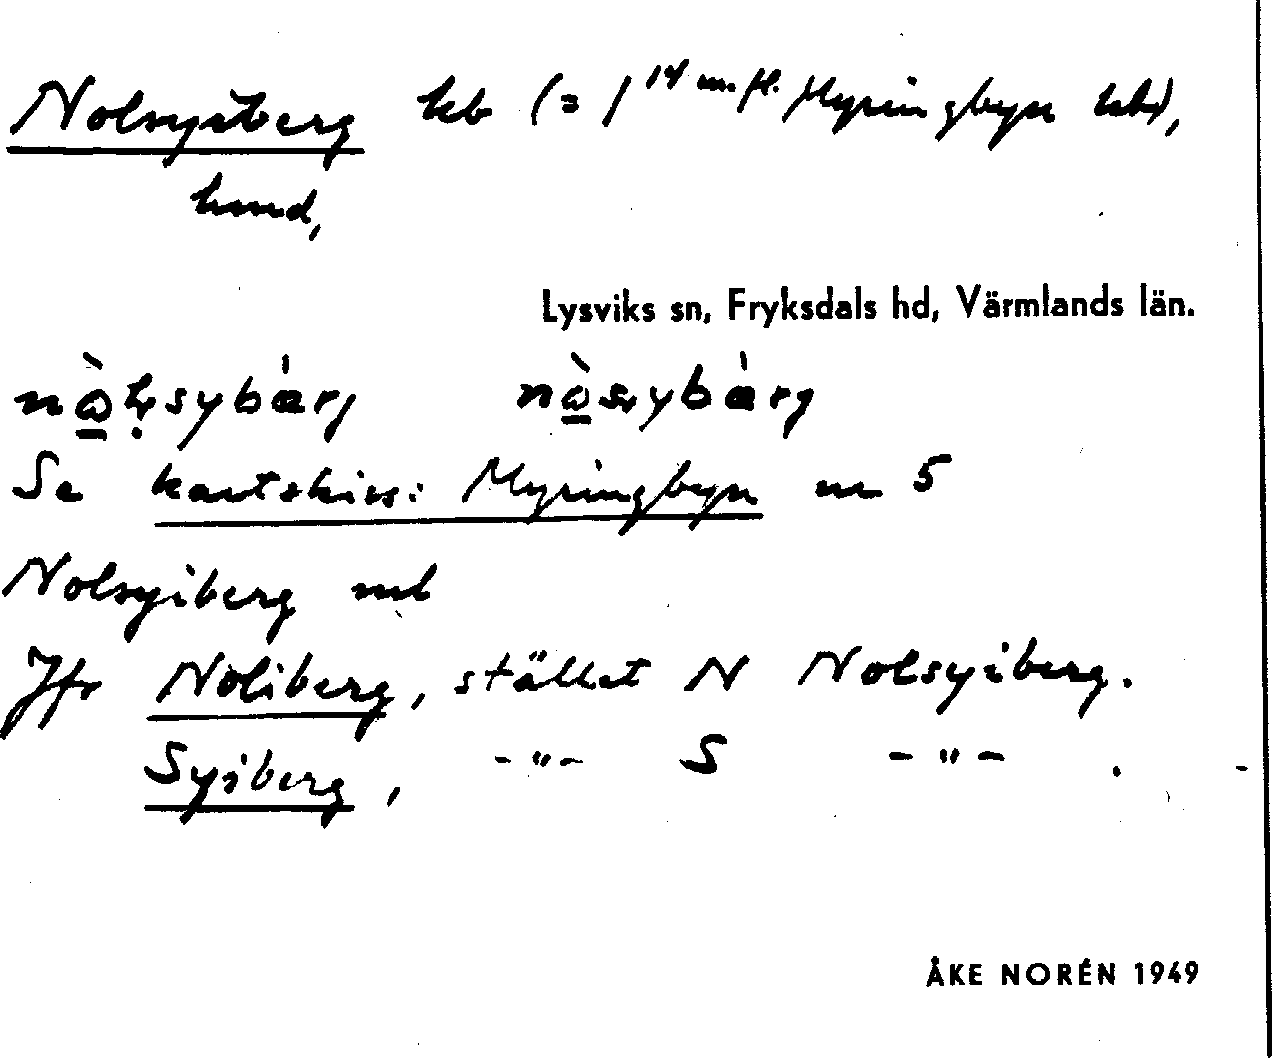 Nolsyiberg kb (= 1¹⁴ m.fl. Myringbyn kb),
hmd,
Lysviks sn, Fryksdals hd, Värmlands län.
Se kartskiss: Myringbyn nr 5
Nolsyiberg
Jfr Noliberg, stället N Nolsyiberg.
Syiberg, -"- S -"- .
ÅKE NORÉN 1949